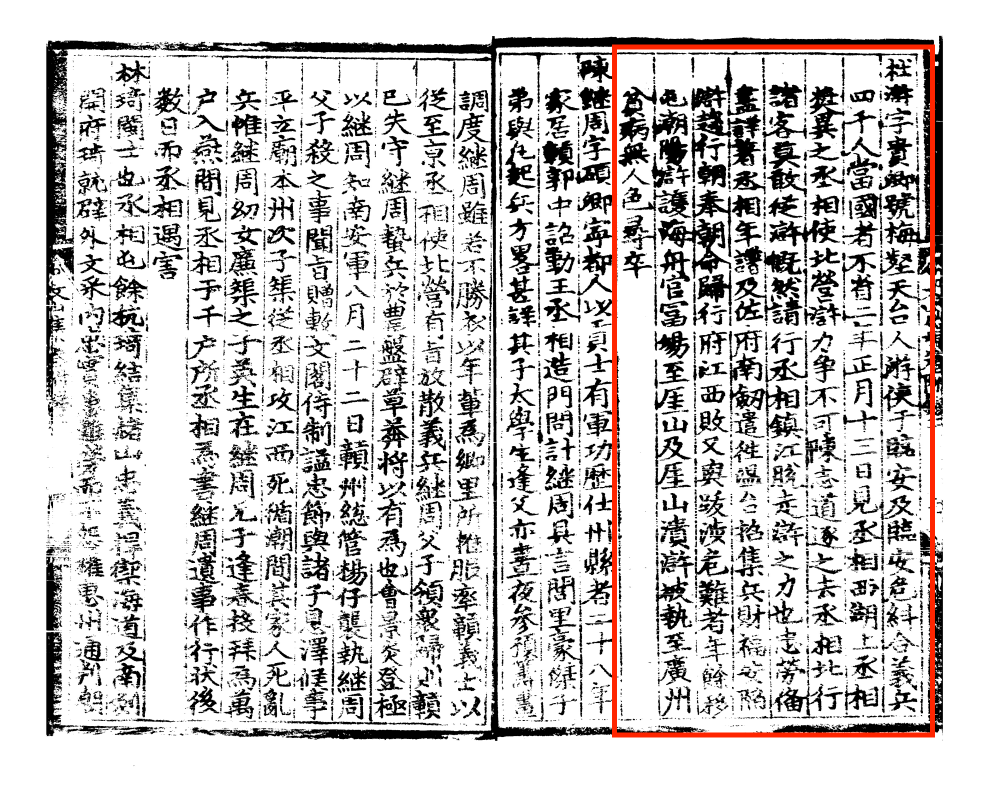 杜滸字貴卿號梅壑天台人游俠于臨安及臨安危糾合義兵
四千人當國者不省二年正月十三日見丞相西湖上丞相
獎異之丞相使北營滸力爭不可陳志道逐之去丞相北行
諸客莫敢從滸慨然請行丞相鎮江脫走滸之力也
孟譯著丞相年譜及佐府南劒遣徃温台招集兵財福安陷
滸趨行朝奉朝命歸行府江西敗又與跋涉危難者年餘移
屯潮陽滸護海舟官富塲至厓山及厓山潰滸被執至廣州
貧病無人色尋卒
陳繼周字碩卿寧都人以貢士有軍功歷仕州縣者二十八年
家居贛郭中詔勤王丞相造門問計繼周具言閭里豪傑子
弟與凡起兵方畧甚詳其子太學生逢父亦晝夜參預籌畫
調度繼周雖若不勝衣以年輩為鄉里所推服率贛義士以
從至京丞相使北營有旨放散義兵繼周父子領衆歸則贛
已失守繼周蟄兵於豊盤辟草莽將以有為也會景炎登極
以繼周知南安軍八月二十二日贛州緫管楊仔襲執繼周
父子殺之事聞旨贈敷文閣侍制諡忠節與諸子恩澤候事
平立廟本州次子榘從丞相攻江西死循潮間其家人死亂
兵惟繼周幼女厲榘之子英生在繼周兄子逢春接拜為萬
户入燕間見丞相于千户所丞相為書繼周遺事作行狀後
數日而丞相遇害
林琦閩士也丞相屯餘杭琦結集諸山忠義捍禦海道及南劒
開府琦就辟外文采内忠實 惠州通判朝